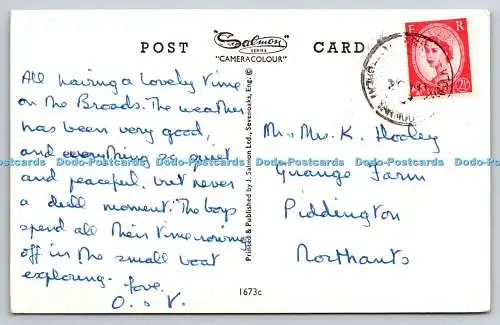 POST CARD
Salmon
SERIES
"CAMERACOLOUR"
© 
E R
2½
All having a lovely time
on the Broads. The weather
has been very good,
and everything so quiet
and peaceful, but never
a dull moment. The boys
spend all their time rowing
off in the small boat
exploring.
Love.
O. & V.
Printed & Published by J. Salmon Ltd., Sevenoaks, Eng.
1673c
Mr Mrs. K. Hooley
Grange Farm
Piddington
Northants
Data-Postcards Data-Postcards Data-Postcards Data-Postcards